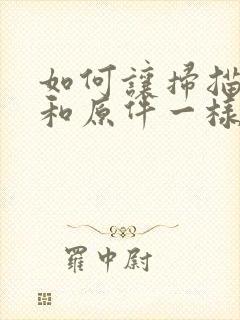 如何讓掃描
和原件一樣
羅中尉